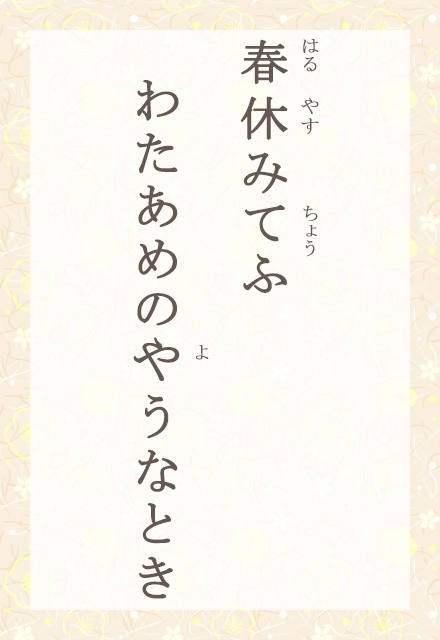 春休みてふ
はる やす ちょう
わたあめのやうなとき
よ